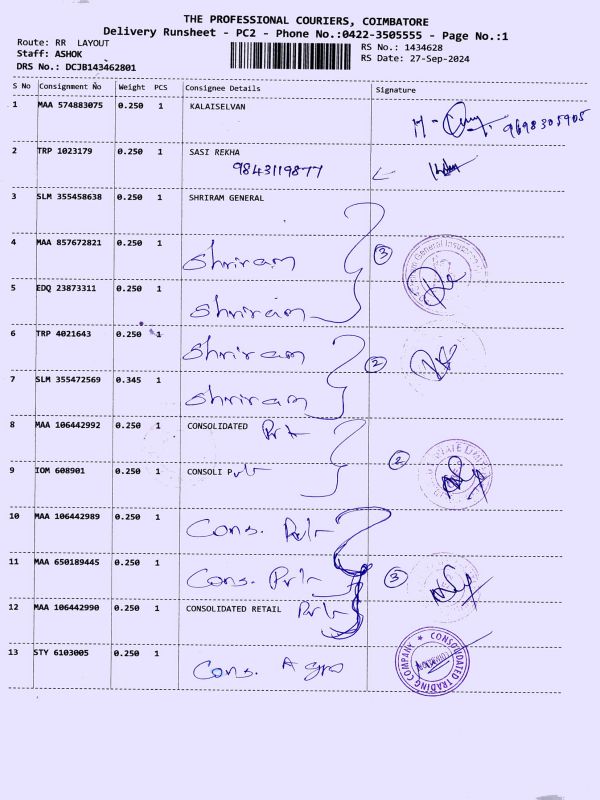 THE PROFESSIONAL COURIERS, COIMBATORE
Delivery Runsheet - PC2 - Phone No.:0422-3505555 - Page No.:1
Route: RR LAYOUT
RS No.: 1434628
Staff: ASHOK
RS Date: 27-Sep-2024
DRS No.: DCJB143462801
S No Consignment No Weight PCS Consignee Details Signature
1 MAA 574883075 0.250 1 KALAISELVAN
9698305905
2 TRP 1023179 0.250 1 SASI REKHA
9843119877
3 SLM 355458638 0.250 1 SHRIRAM GENERAL
4 MAA 857672821 0.250 1 Shriram 3
5 EDQ 23873311 0.250 1 Shriram
6 TRP 4021643 0.250 1 Shriram
7 SLM 355472569 0.345 1 Shriram 2
8 MAA 106442992 0.250 1 CONSOLIDATED
9 IOM 608901 0.250 1 CONSOLI 2
10 MAA 106442989 0.250 1 Cons.
11 MAA 650189445 0.250 1 Cons. 3
12 MAA 106442990 0.250 1 CONSOLIDATED RETAIL
13 STY 6103005 0.250 1 Cons. Agro
CONSOLIDATED TRADING COMPANY